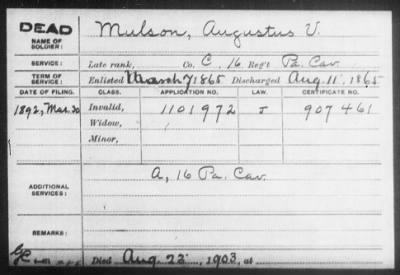 DEAD
NAME OF SOLDIER: Mulson, Augustus V.
SERVICE: Late rank, Co. C, 16 Reg't Pa. Cav.
TERM OF SERVICE: Enlisted March 7 1865 Discharged Aug. 11, 1865
DATE OF FILING. CLASS. APPLICATION NO. LAW. CERTIFICATE NO.
1892, Mar. 30 Invalid, 1101972 J 907461
Widow,
Minor,
ADDITIONAL SERVICES: A, 16 Pa. Cav.
REMARKS:
Died Aug. 22, 1903, at